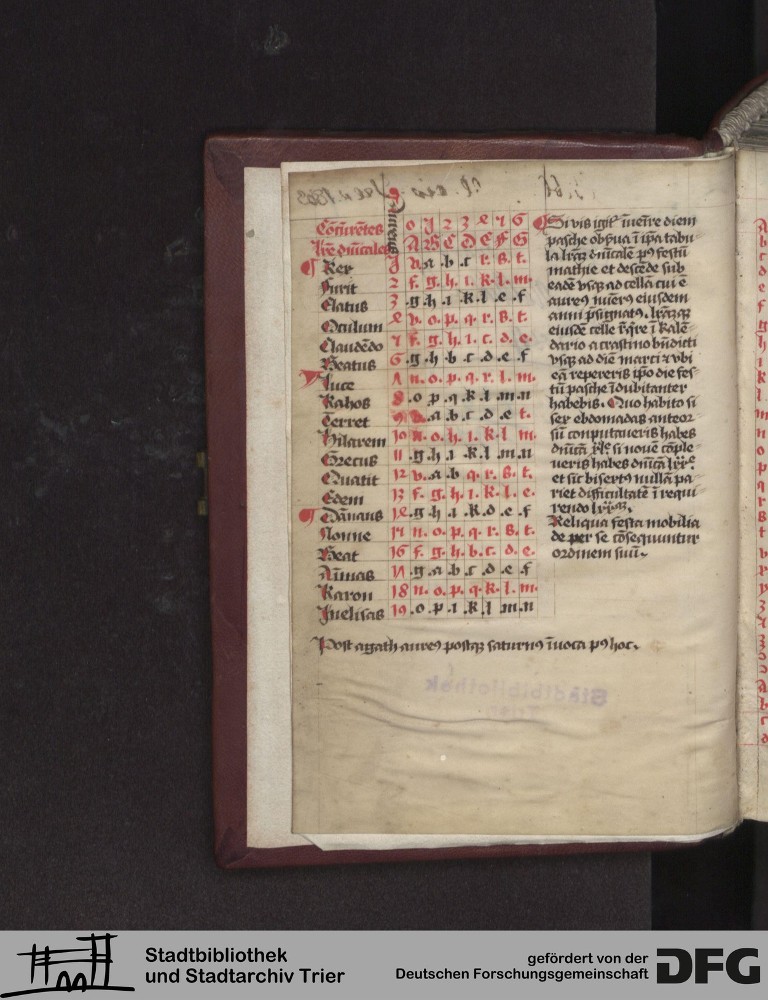 Cōcurētes 0 1 2 3 4 5 6
lrē dn̄icales A B C D E F G
Rex 1 u a b c r s t
furit 2 f g h i k l m
Clatus 3 g h i k l e f
Oculum 4 n o p q r s t
Claudēdo 5 f g h i c d e
Beatus 6 g h b c d e f
Luce 7 n o p q r l m
Rahos 8 o p q k l m n
Terret 9 a b c d e t
Hilarem 10 n o h i k l m
Grecus 11 g h i k l m n
Quatit 12 u a b q r s t
Edem 13 f g h i k l e
Dānaus 14 g h i k d e f
Nonne 15 n o p q r s t
Beat 16 f g h b c d e
Aīmas 17 g a b c d e f
Karon 18 n o p q k l m
Inelisas 19 o p i k l m n
Post agath aureꝰ postqꝫ saturnꝰ īuoca pꝰ hoc
Si vis igit᷑ īuēire diem
pasche obs̄ua ī ip̄a tabu
la lr̄aꝫ dn̄icalē pꝰ festū
mathie et descēde sub
eadē vsqꝫ ad cellā cui ē
aureꝰ nūerꝰ eiusdem
anni p̄signatꝰ. lr̄amqꝫ
eiusdē celle r̄qͥre ī kalē
dario a crastino bn̄dicti
vsqꝫ ad diē marci ⁊ vbi
eā repereris ip̄o die fes
tū pasche īdubitanter
habebis. Quo habito si
sex ebdomadas anteor
sū conputaueris habes
dn̄icā si nouē cōple
ueris habes dn̄icā lxx
et sic bisextꝰ nullā pa
riet difficultatē ī requi
rendo lxx
Reliqua festa mobilia
de per se cōsequuntur
ordinem suū
Stadtbibliothek
Trier
Stadtbibliothek
und Stadtarchiv Trier
gefördert von der
Deutschen Forschungsgemeinschaft
DFG